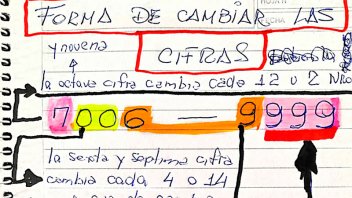 FORMA DE CAMBIAR LAS
CIFRAS
y novena
la octava cifra cambia cada 12 o 2 NRO
7006 — 9999
la sexta y septima cifra
cambia cada 4 o 14